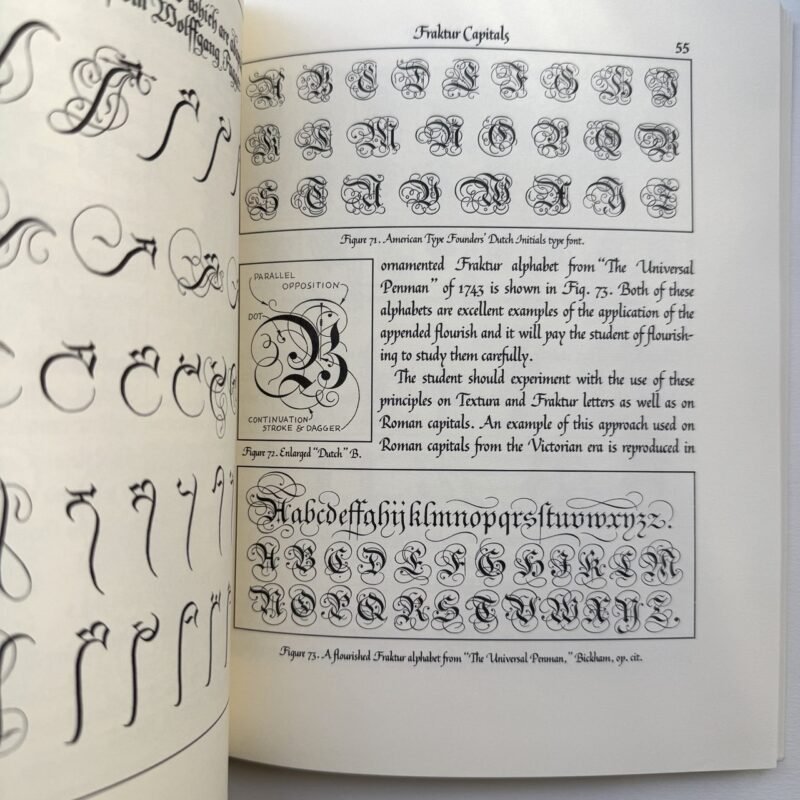 which are
Wolffgang
Fraktur Capitals
55
A B C D E F G H I
K L M N O P Q R
S T U V W X Y Z
Figure 71. American Type Founders' Dutch Initials type font.
PARALLEL
OPPOSITION
DOT
B
CONTINUATION
STROKE & DAGGER
Figure 72. Enlarged "Dutch" B.
ornamented Fraktur alphabet from "The Universal
Penman" of 1743 is shown in Fig. 73. Both of these
alphabets are excellent examples of the application of the
appended flourish and it will pay the student of flourish-
ing to study them carefully.
The student should experiment with the use of these
principles on Textura and Fraktur letters as well as on
Roman capitals. An example of this approach used on
Roman capitals from the Victorian era is reproduced in
Aabcdeffghijklmnopqrsſtuvwxyzz.
A B C D E F G H I K L M
N O P Q R S T V W X Y Z.
Figure 73. A flourished Fraktur alphabet from "The Universal Penman," Bickham, op. cit.